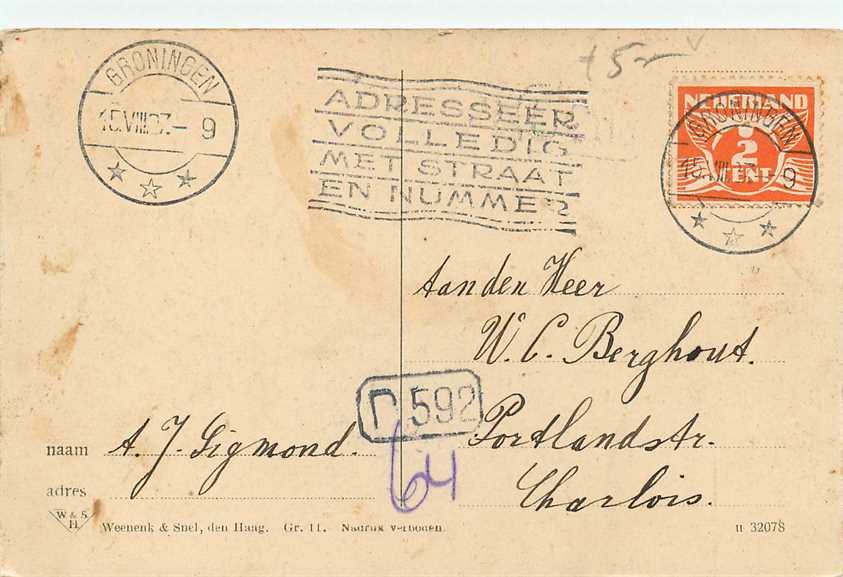 +5-
GRONINGEN
15.VIII.27.- 9
ADRESSEER
VOLLEDIG
MET STRAAT
EN NUMMER
NEDERLAND
2
CENT
GRONINGEN
15.VIII.27 9
Aan den Heer
W. C. Berghout.
592
Portlandstr.
naam A. J. Sigmond.
64
Charlois.
adres
W & S
H
Weenenk & Snel, den Haag. Gr. 11. Nadruk verboden.
u 32078